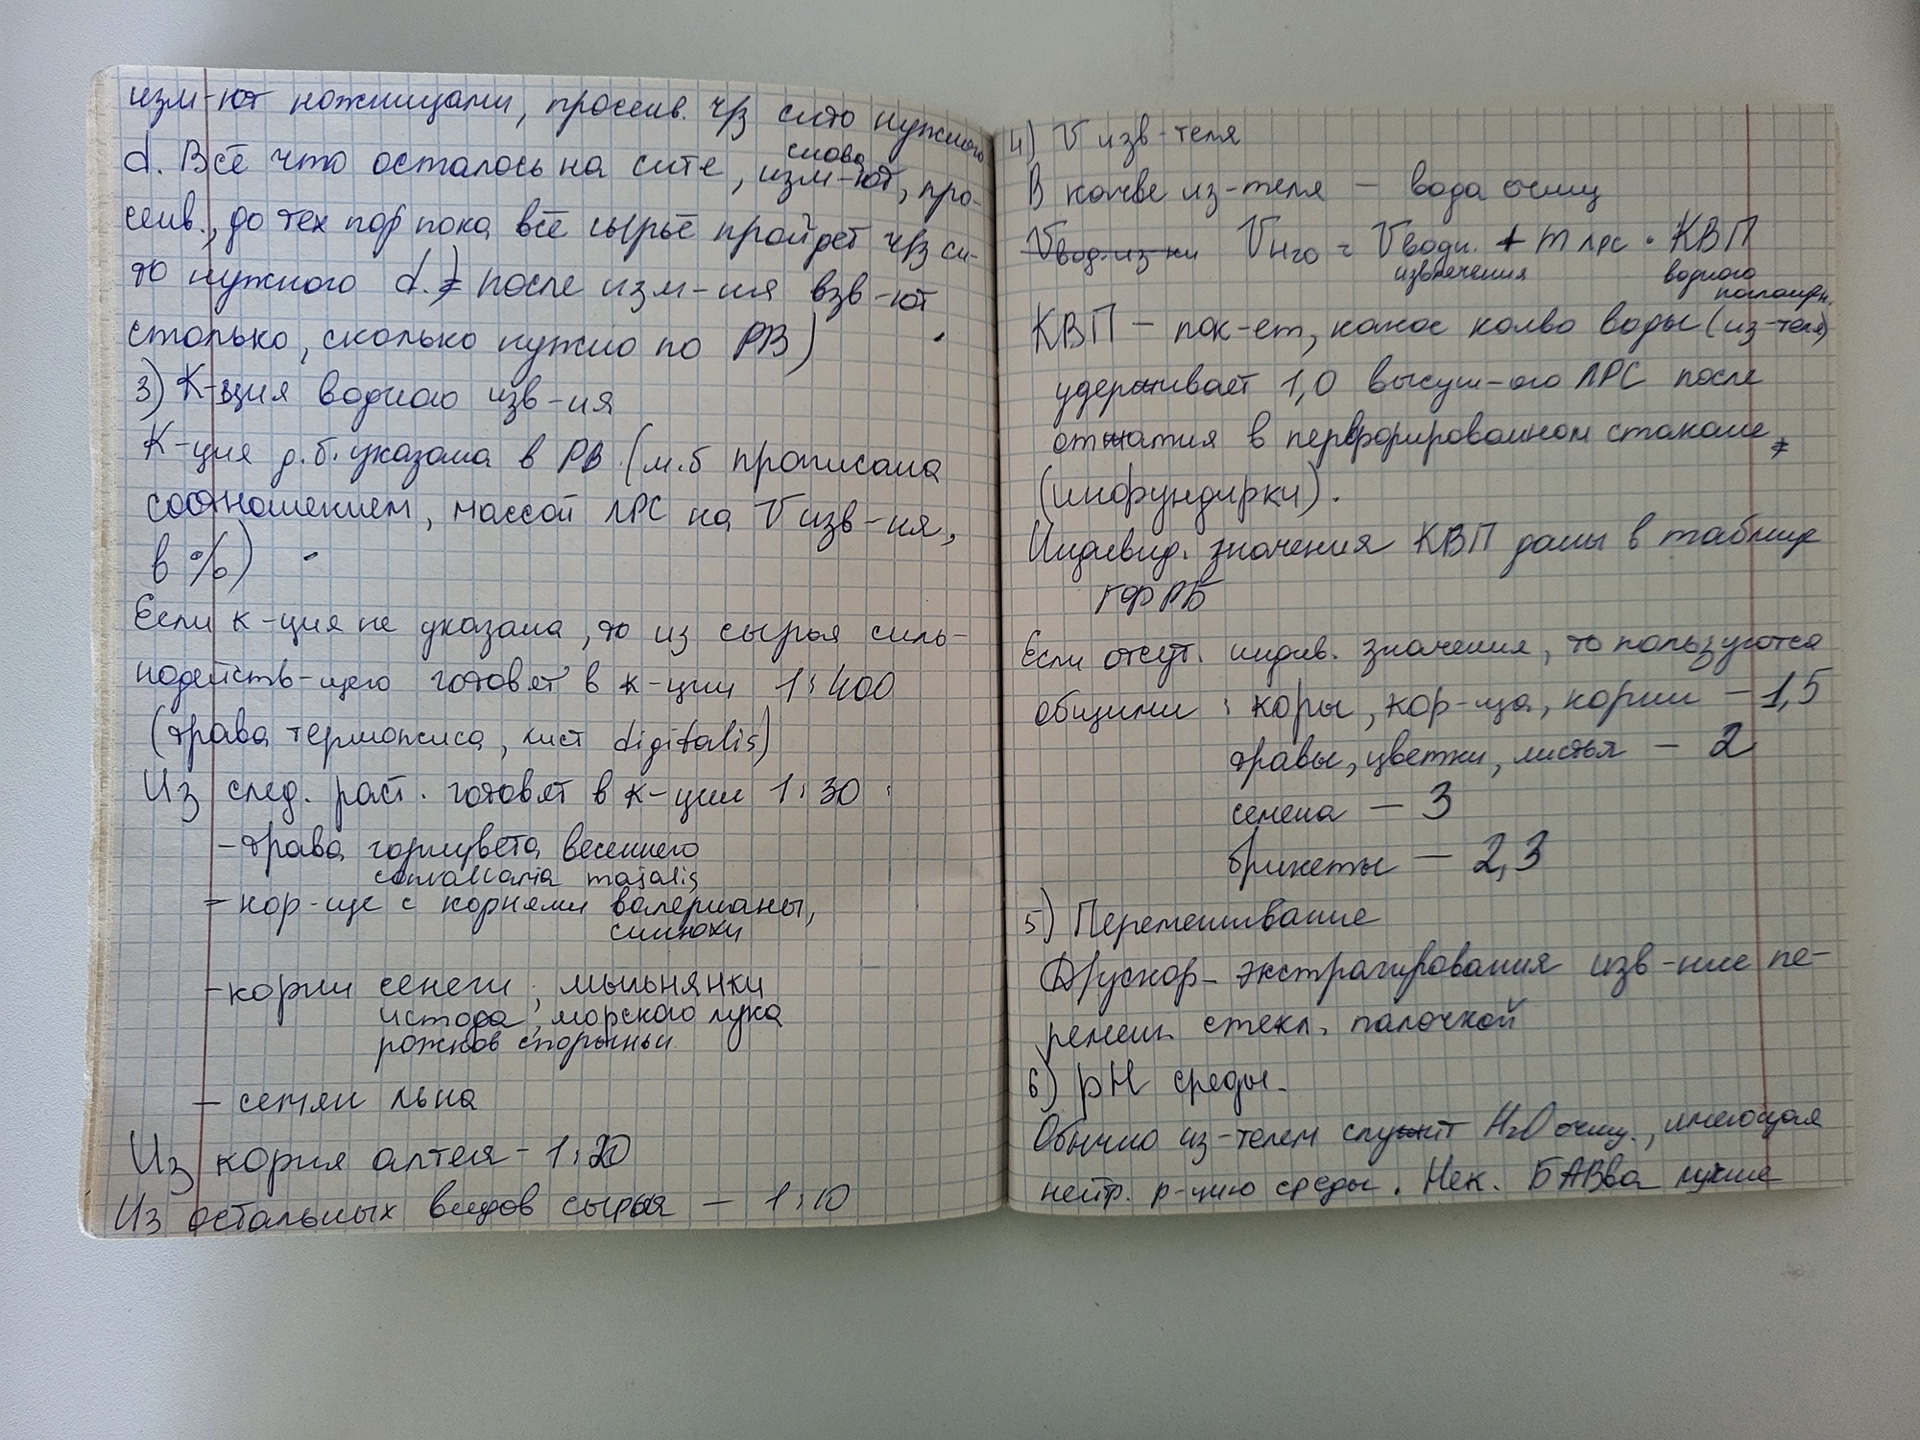 изм-ют ножницами, просеив. ч/з сито нужного
d. Всё что осталось на сите, снова изм-ют, про-
сеив., до тех пор пока всё сырьё пройдет ч/з си-
то нужного d. после изм-ия взв-ют
столько, сколько нужно по РВ)
3) К-ция водного изв-ия
К-ция д.б. указана в РВ (м.б прописана
соотношением, массой ЛРС на V изв-ия,
в %)
Если к-ция не указана, то из сырья силь-
нодейств-щего готовят в к-ции 1:400
(трава термопсиса, лист digitalis)
Из след. раст. готовят в к-ции 1:30 :
- трава горицвета весеннего
convallaria majalis
- кор-ще с корнями валерианы,
синюхи
- корни сенеги, мыльнянки
истода, морского лука
рожков спорыньи
- семян льна
Из корня алтея - 1:20
Из остальных видов сырья - 1:10
4) V изв-теля
В кач-ве из-теля - вода очищ
Vвод.из-ки VH2O = Vводн. извлечения + m лрс · КВП
водного
поглощен.
КВП - пок-ет, какое кол-во воды (из-теля)
удерживает 1,0 высуш-ого ЛРС после
отжатия в перфорированном стакане
(инфундирки).
Индивид. значения КВП даны в таблице
ГФ РБ
Если отсут. индив. значения, то пользуются
общими : коры, кор-ща, корни - 1,5
травы, цветки, листья - 2
семена - 3
брикеты - 2,3
5) Перемешивание
Д/ускор- экстрагирования изв-ние пе-
ремеш. стекл. палочкой
6) pH среды.
Обычно из-телем служит H2O очищ., имеющая
нейтр. р-цию среды. Нек. БАВва лучше